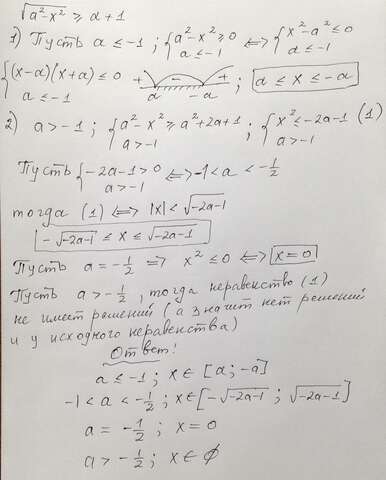 √(a²-x²) ≥ a+1
1) Пусть a ≤ -1 ; { a²-x² ≥ 0 ; a ≤ -1 ⟺ { x²-a² ≤ 0 ; a ≤ -1
{ (x-a)(x+a) ≤ 0 ; a ≤ -1   + - +   a   -a ; a ≤ x ≤ -a
2) a > -1 ; { a²-x² ≥ a²+2a+1 ; a > -1 ; { x² ≤ -2a-1 (1) ; a > -1
Пусть { -2a-1 > 0 ; a > -1 ⟺ -1 < a < -1/2
тогда (1) ⟺ |x| < √(-2a-1)
-√(-2a-1) ≤ x ≤ √(-2a-1)
Пусть a = -1/2 ⟹ x² ≤ 0 ⟺ x = 0
Пусть a > -1/2 , тогда неравенство (1)
не имеет решений (а значит нет решений
и у исходного неравенства)
Ответ:
a ≤ -1 ; x ∈ [a ; -a]
-1 < a < -1/2 ; x ∈ [-√(-2a-1) ; √(-2a-1)]
a = -1/2 ; x = 0
a > -1/2 ; x ∈ ∅